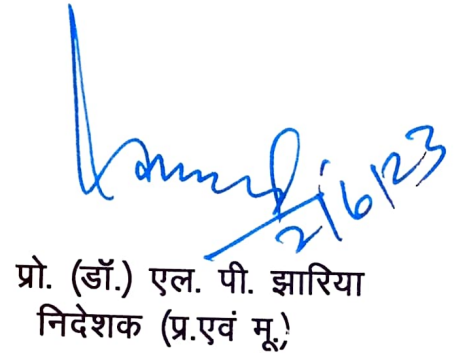 2/6/23
प्रो. (डॉ.) एल. पी. झारिया
निदेशक (प्र.एवं मू.)